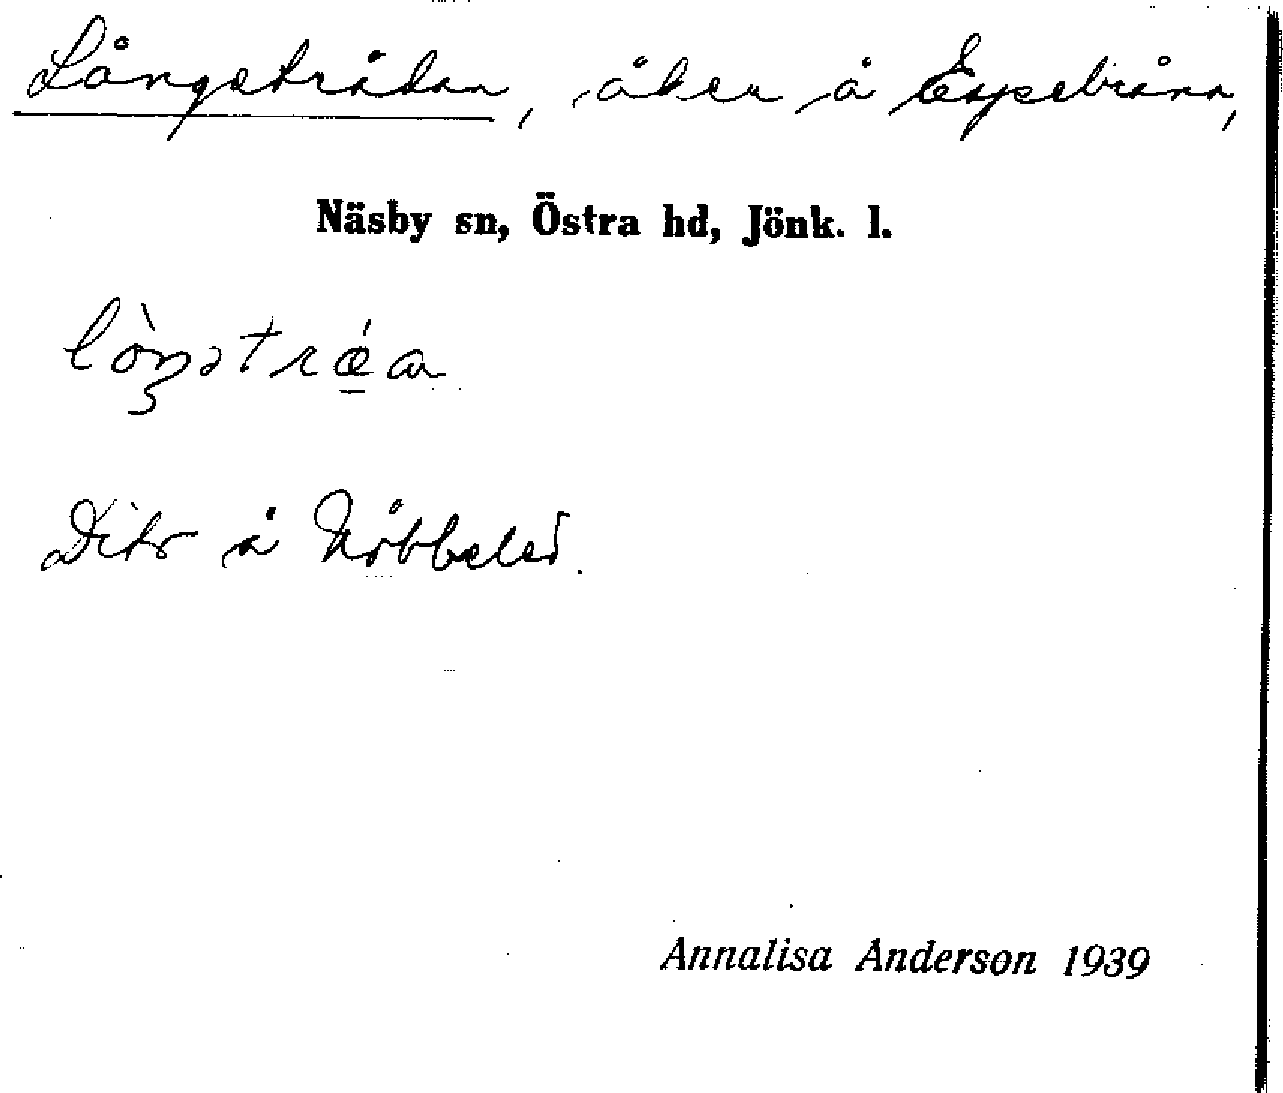 Långstrådan, åker å Espebråna,
Näsby sn, Östra hd, Jönk. l.
Dito å Nöbbeled.
Annalisa Anderson 1939